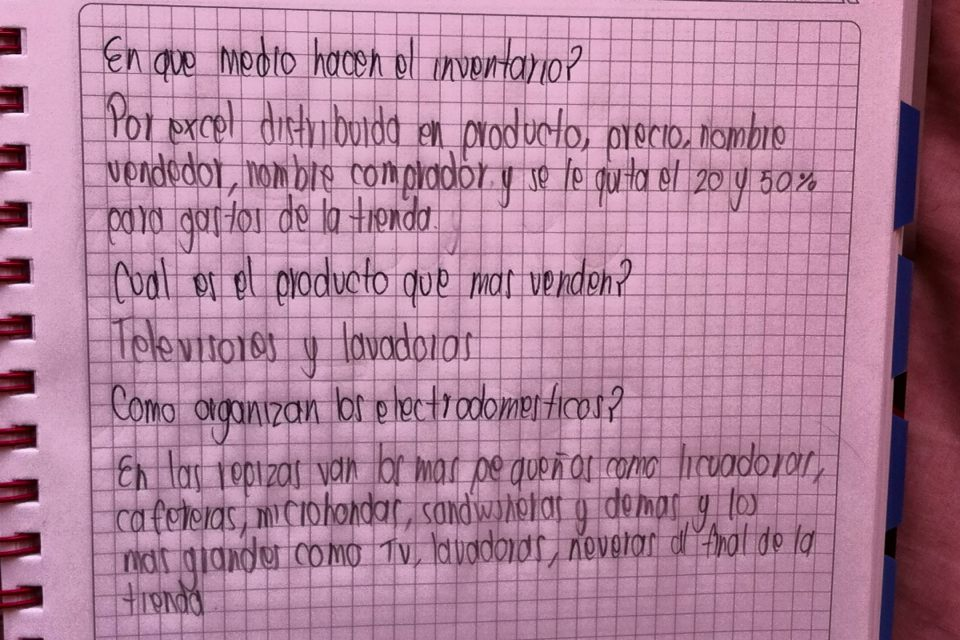 En que medio hacen el inventario?
Por excel distribuida en producto, precio, nombre
vendedor, nombre comprador y se le quita el 20 y 50%
para gastos de la tienda.
Cual es el producto que mas venden?
Televisores y lavadoras
Como organizan los electrodomesticos?
En las repizas van los mas pequeños como licuadoras,
cafeteras, microhondas, sandwicheras y demas y los
mas grandes como TV, lavadoras, neveras al final de la
tienda